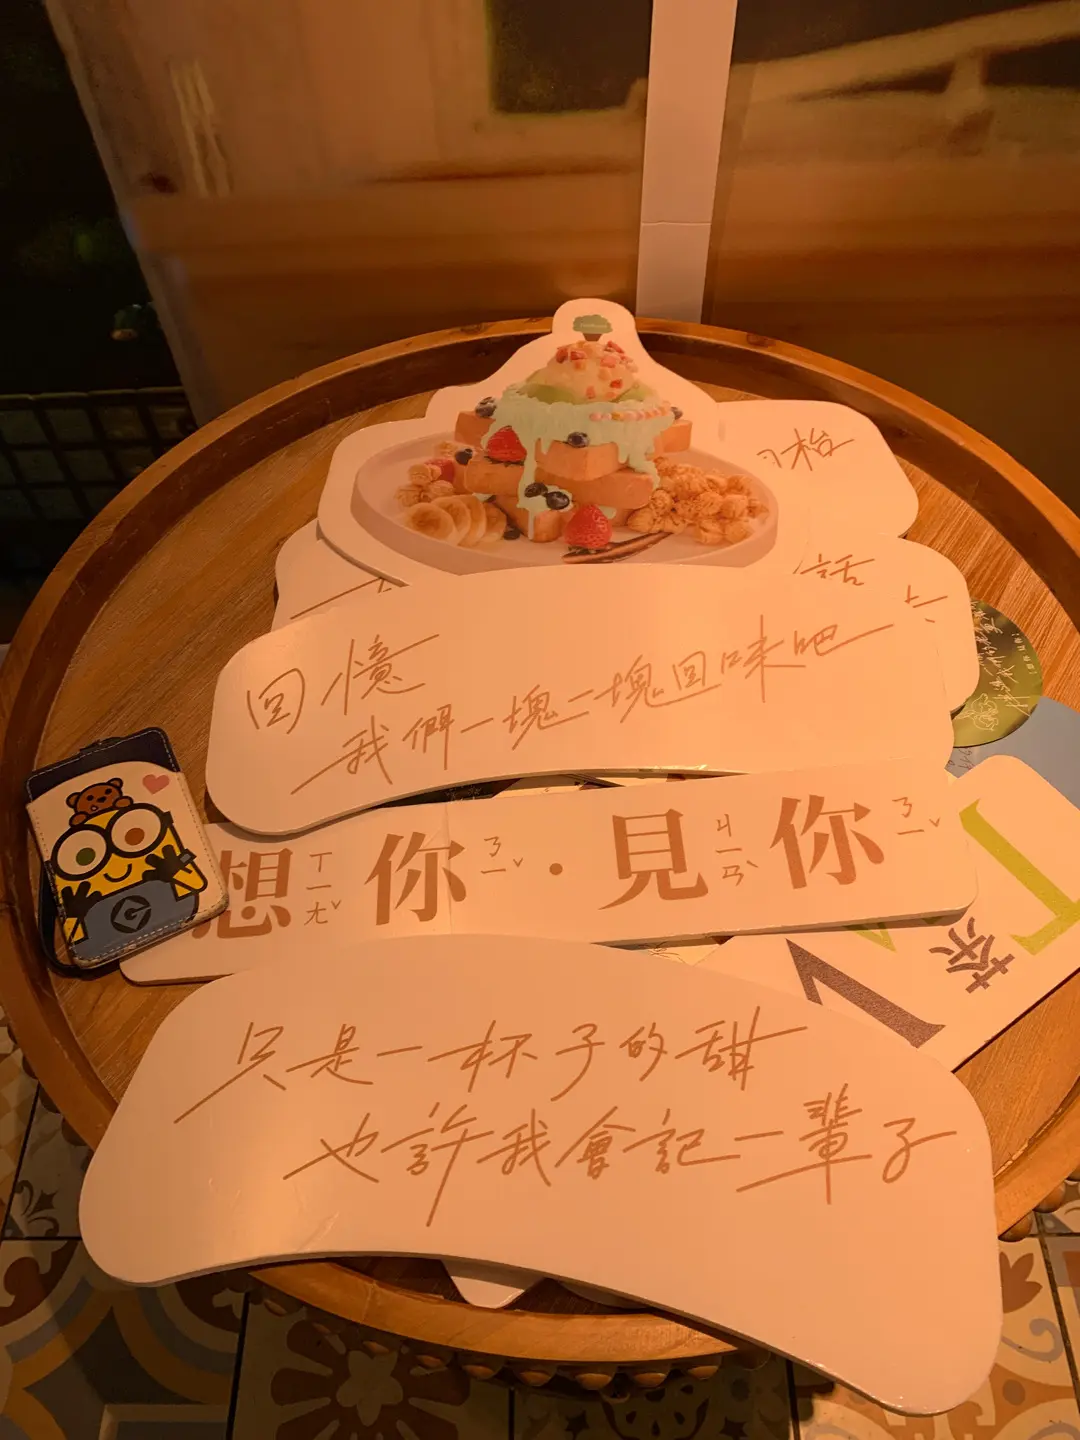 枱
話
回憶
我們一塊一塊回味吧
想ㄒㄧㄤˇ你ㄋㄧˇ・見ㄐㄧㄢˋ你ㄋㄧˇ
茶
只是一杯子的甜
也許我會記一輩子